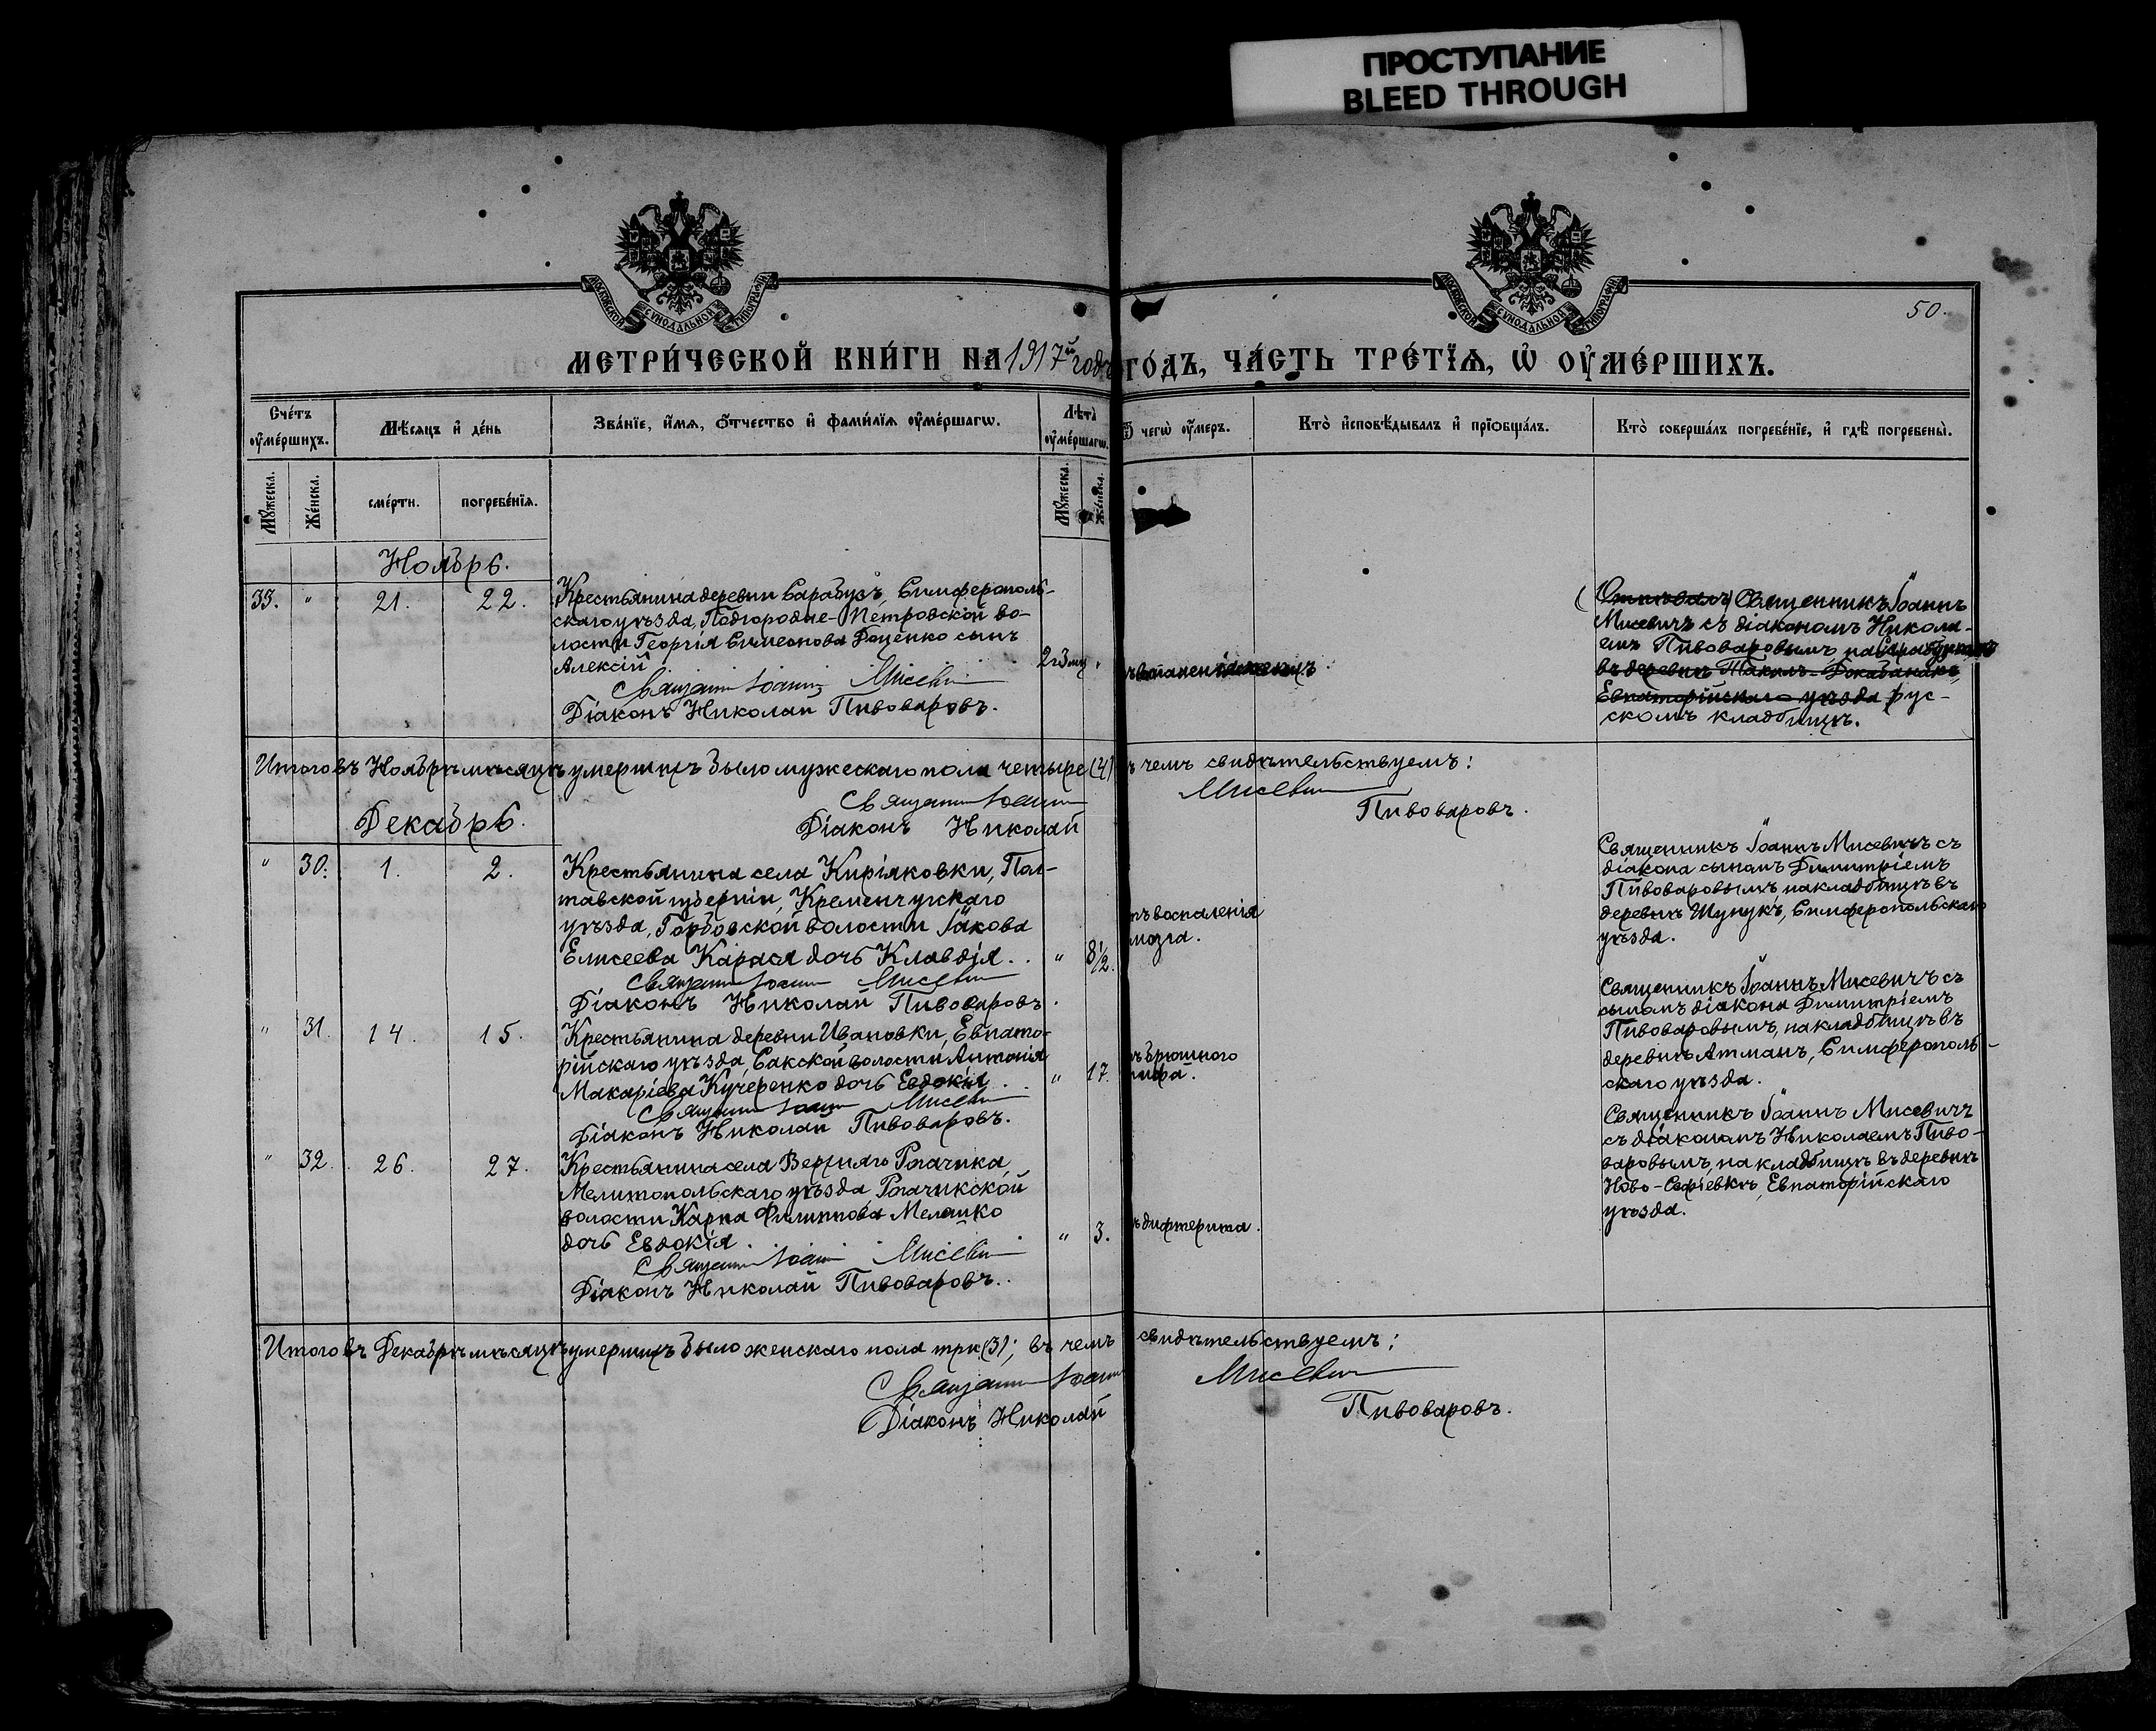 ПРОСТУПАНИЕ
BLEED THROUGH
МОСКОВСКОЙ СѴНОДАЛЬНОЙ ТИПОГРАФІИ
МОСКОВСКОЙ СѴНОДАЛЬНОЙ ТИПОГРАФІИ
50.
МЕТРИ́ЧЕСКОЙ КНИ́ГИ НА 1917й годъ ГО́ДЪ, ЧА́СТЬ ТРЕ́ТЇѦ, Ѡ҆ ОУ҆МЕ́РШИХЪ.
Сче́тъ оу҆ме́ршихъ.
Мѣ́сяцъ и҆ де́нь
Зва́нїе, и҆́мѧ, ѻ҆́тчество и҆ фами́лїѧ оу҆ме́ршагѡ.
Лѣ́та оу҆ме́ршагѡ.
Ѿ чегѡ̀ оу҆́меръ.
Кто̀ и҆сповѣ́дывалъ и҆ прїѡбща́лъ.
Кто̀ соверша́лъ погребе́нїе, и҆ гдѣ̀ погребены̀.
Мꙋ́жеска.
Же́нска.
сме́рти.
погребе́нїѧ.
Мꙋ́жеска.
Же́нска.
Ноябрь.
33. " 21. 22.
Крестьянина деревни Сарабузъ, Симферополь-
скаго уѣзда, Подгородне-Петровской во-
лости Георгія Симеонова Доценко сынъ
Алексій.
2 г 3 мц "
Священникъ Іоаннъ Мисевичъ
Діаконъ Николай Пивоваровъ.
(Отпѣвалъ) Священникъ Іоаннъ
Мисевичъ съ діакономъ Никола-
емъ Пивоваровымъ на
въ деревнѣ
Евпаторійскаго уѣзда рус-
скомъ кладбищѣ.
Итого въ Ноябрѣ мѣсяцѣ умершихъ было мужескаго пола четыре (4) въ чемъ свидѣтельствуемъ:
Священникъ Іоаннъ Мисевичъ
Діаконъ Николай Пивоваровъ.
Декабрь.
" 30. 1. 2.
Крестьянина села Киріяковки, Пол-
тавской губерніи, Кременчугскаго
уѣзда, Горбовской волости Іакова
Елисеева Карася дочь Клавдія. .
" 8½.
отъ воспаленія
мозга.
Священникъ Іоаннъ Мисевичъ
Діаконъ Николай Пивоваровъ.
Священникъ Іоаннъ Мисевичъ съ
діакона сыномъ Димитріемъ
Пивоваровымъ, на кладбищѣ въ
деревнѣ Шунукъ, Симферопольскаго
уѣзда.
" 31. 14. 15.
Крестьянина деревни Ивановки, Евпато-
рійскаго уѣзда, Сакской волости Антонія
Макаріева Кучеренко дочь Евдокія. .
" 17.
ъ брюшного
тифа.
Священникъ Іоаннъ Мисевичъ
Діаконъ Николай Пивоваровъ.
Священникъ Іоаннъ Мисевичъ съ
сыномъ діакона Димитріемъ
Пивоваровымъ, на кладбищѣ въ
деревнѣ Атманъ, Симферополь-
скаго уѣзда.
" 32. 26. 27.
Крестьянина села Верхняго Рогачика
Мелитопольскаго уѣзда, Рогачикской
волости Карпа Филиппова Мелашко
дочь Евдокія.
" 3.
ъ дифтерита.
Священникъ Іоаннъ Мисевичъ
Діаконъ Николай Пивоваровъ.
Священникъ Іоаннъ Мисевичъ
съ діакономъ Николаемъ Пиво-
варовымъ, на кладбищѣ въ деревнѣ
Ново-Софіевкѣ, Евпаторійскаго
уѣзда.
Итого въ Декабрѣ мѣсяцѣ умершихъ было женскаго пола три (3); въ чемъ свидѣтельствуемъ:
Священникъ Іоаннъ Мисевичъ
Діаконъ Николай Пивоваровъ.